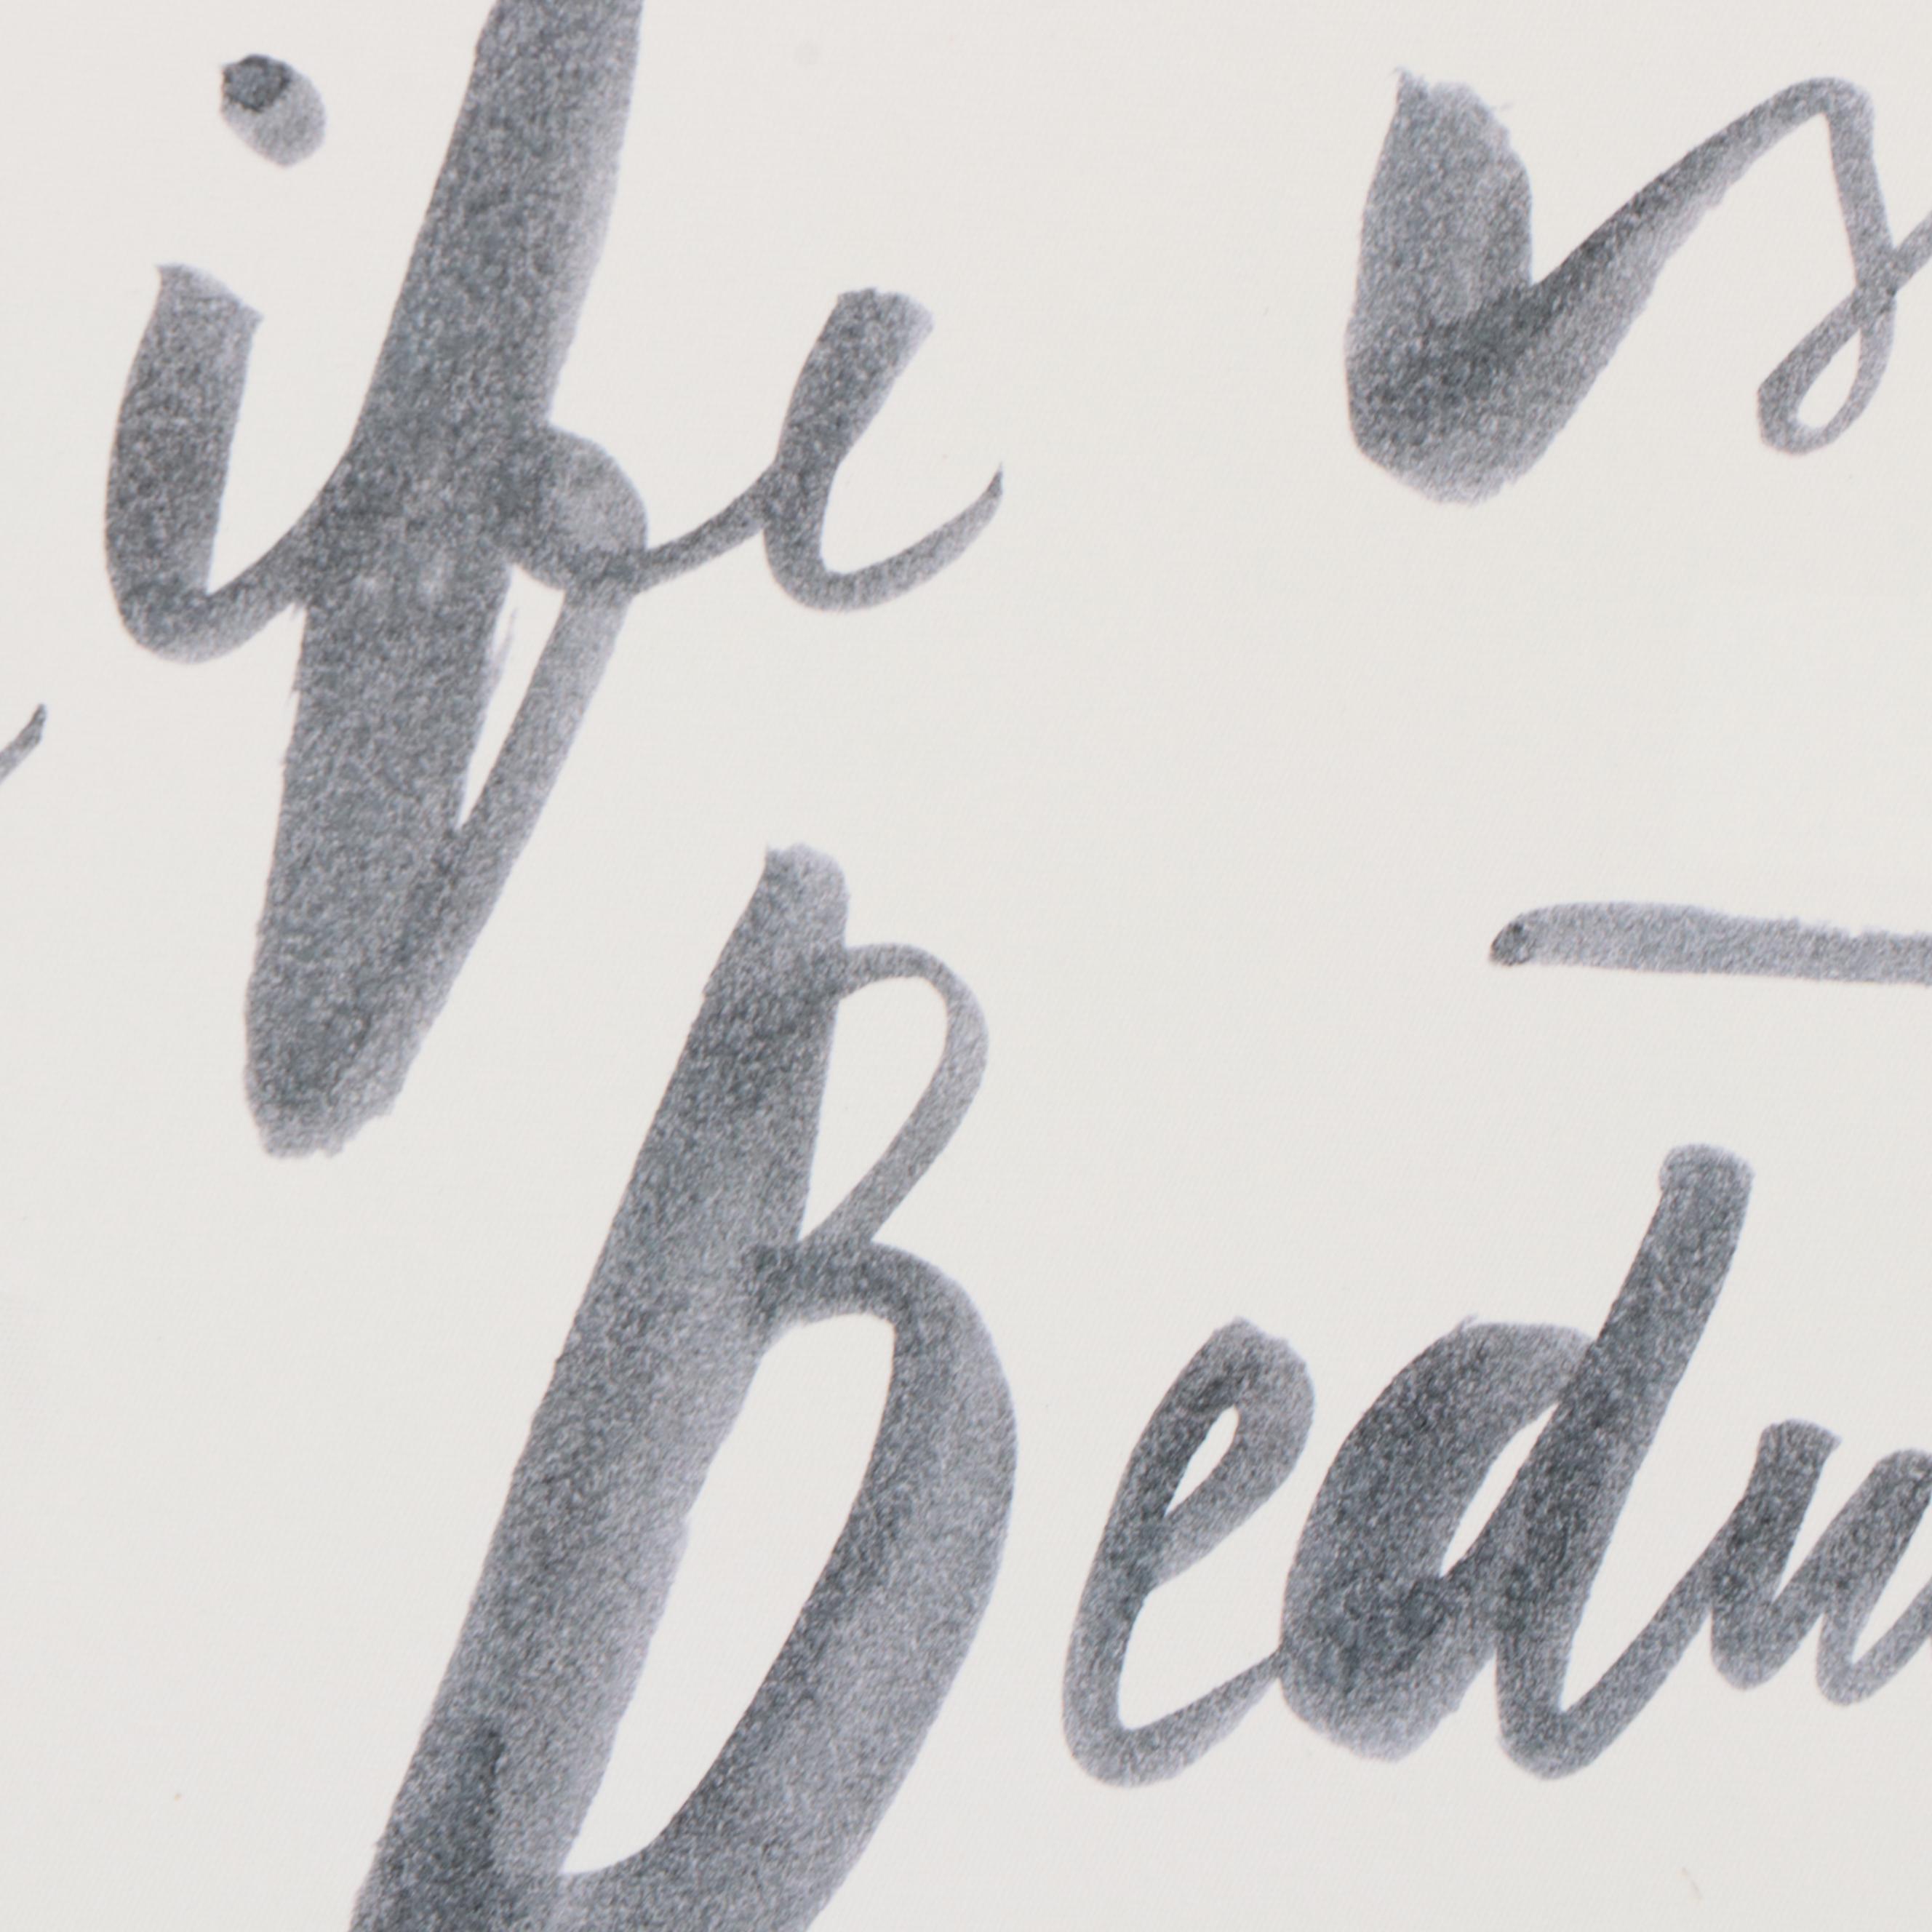 ife is
Beau